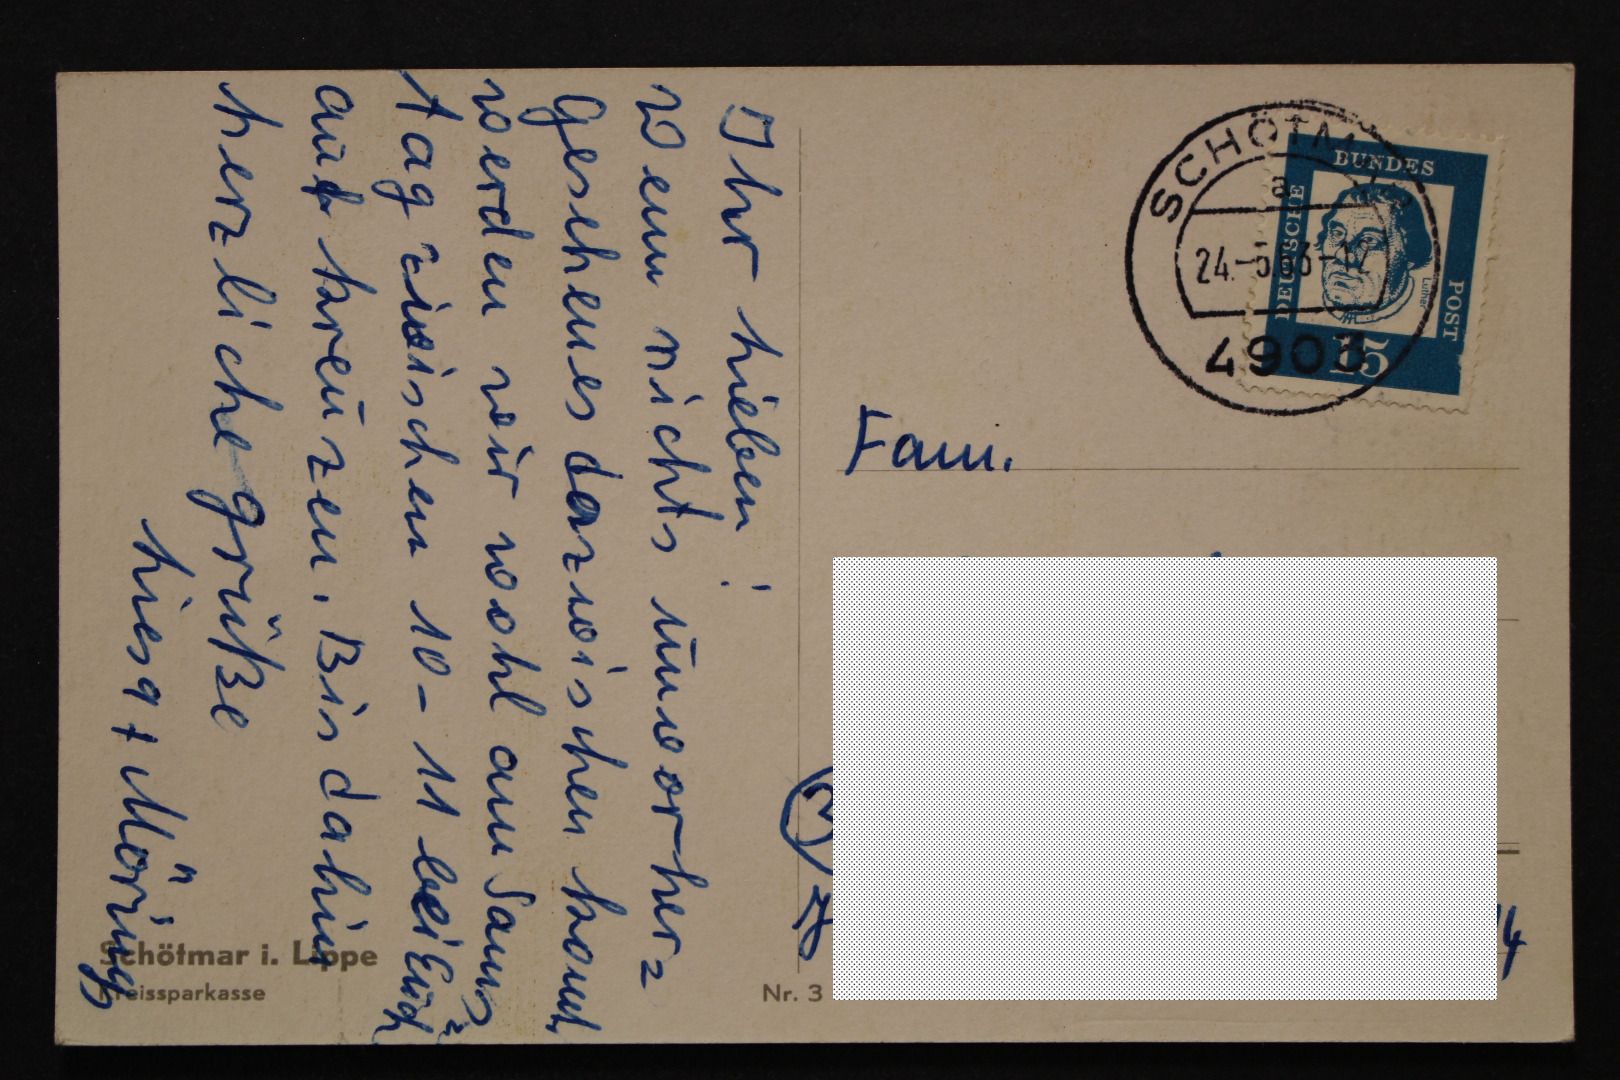 Ihr Lieben!
Wenn nichts unvorher=
gesehenes dazwischen kommt,
werden wir wohl am Sams=
tag zwischen 10 - 11 bei Euch
aufkreuzen. Bis dahin
herzliche Grüße
Liesa + Möring
Schötmar i. Lippe
Kreissparkasse
Nr. 3
SCHÖTMAR
a
24.-5.63-17
4903
DEUTSCHE
BUNDES
POST
Luther
15
Fam.
4